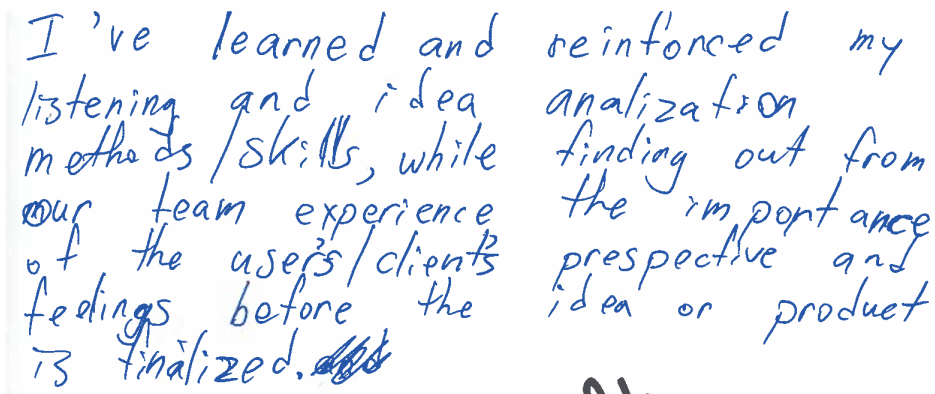 I've learned and reinforced my
listening and idea analization
methods/skills, while finding out from
our team experience the importance
of the user's/client's prespective and
feelings before the idea or product
is finalized.